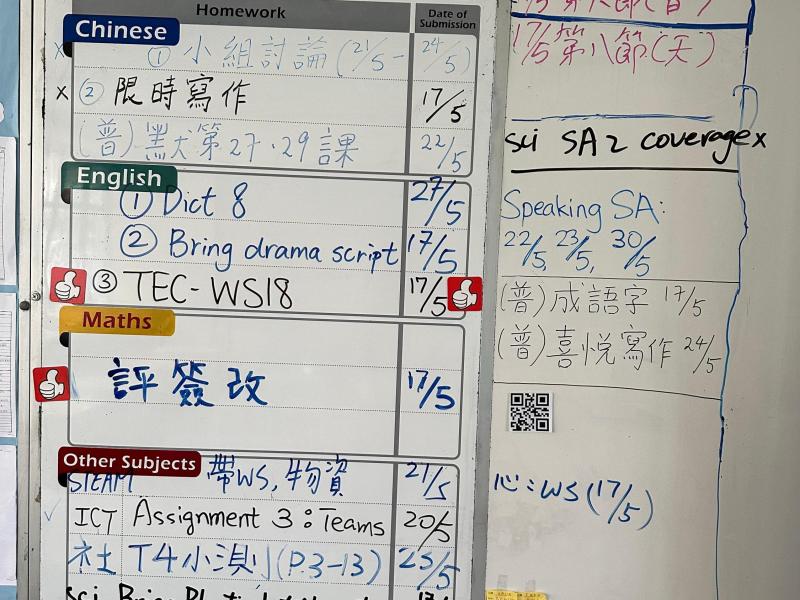 Homework
Date of Submission
Chinese
x ① 小組討論(21/5- 24/5)
x ② 限時寫作 17/5
(普)黑犬第27·29課 22/5
English
① Dict 8 27/5
② Bring drama script 17/5
③ TEC-WS18 17/5
Maths
評簽改 17/5
Other Subjects
STEAM 帶WS,物資 21/5
ICT Assignment 3:Teams 20/5
社 T4小測(P.3-13) 23/5
Sci Bring
17/5第八節(天)
sci SA2 coverage x
Speaking SA:
22/5, 23/5, 30/5
(普)成語字 17/5
(普)喜悅寫作 24/5
心:WS(17/5)